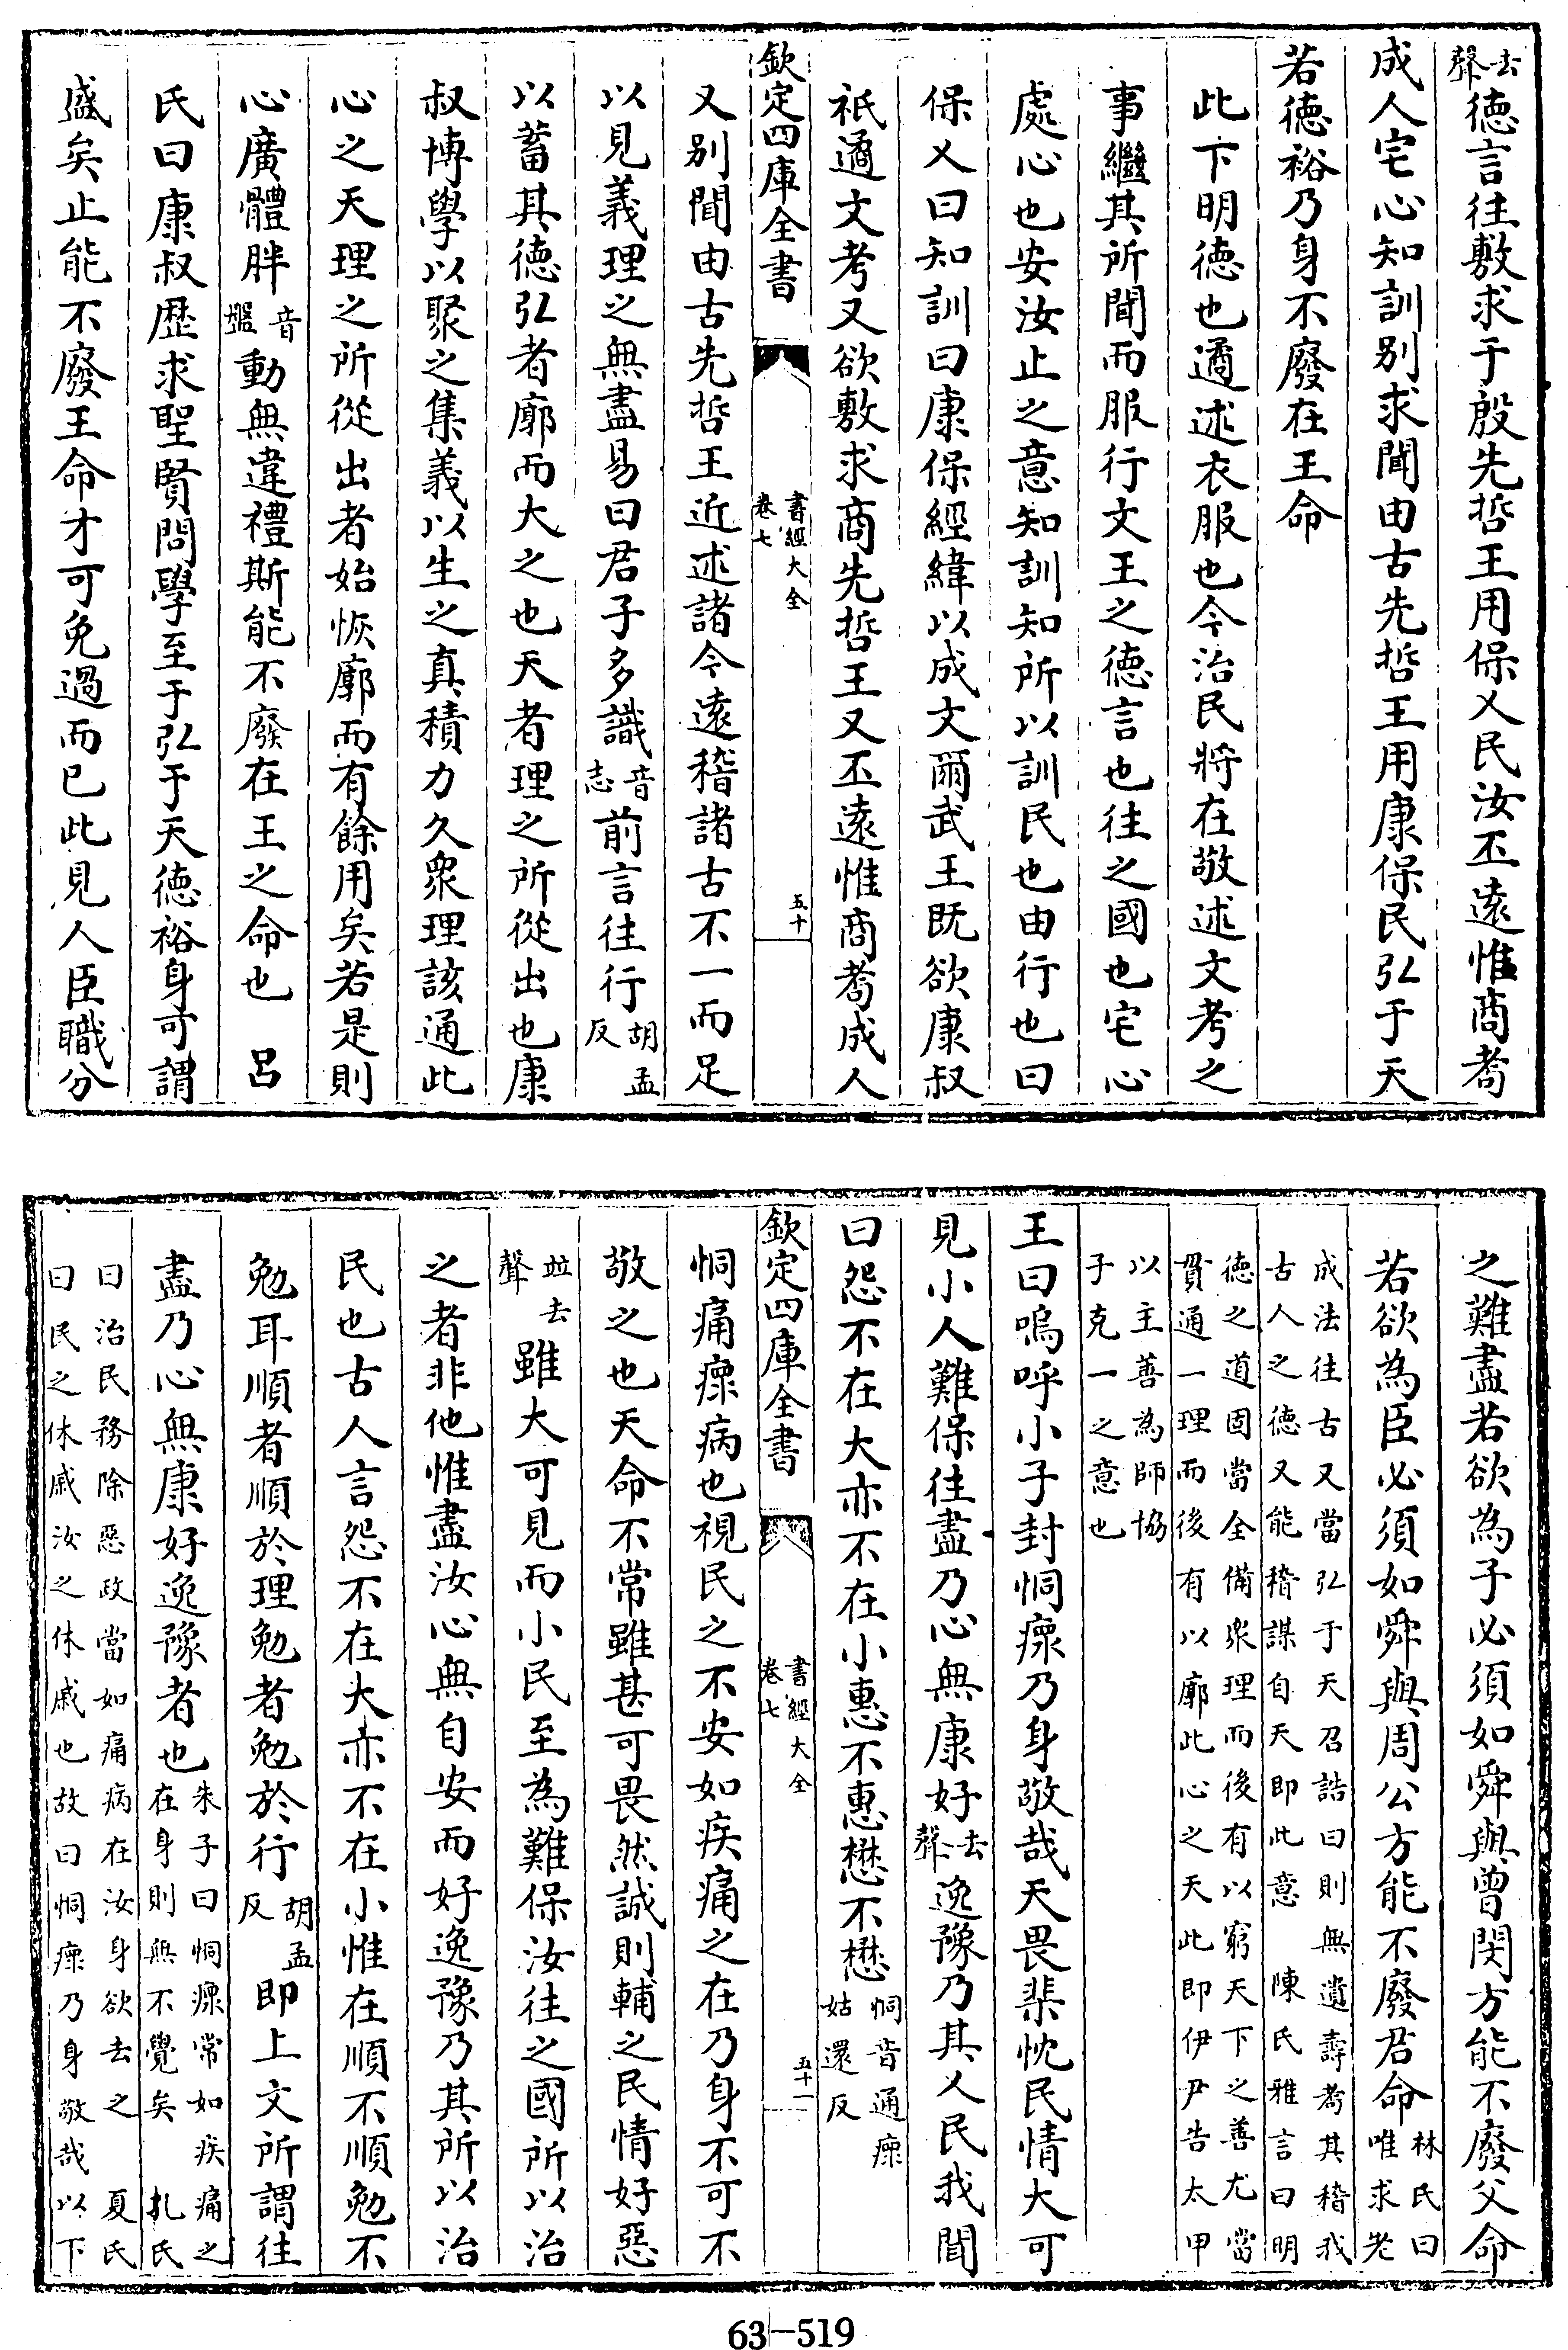 去聲德言往敷求于殷先哲王用保乂民汝丕遠惟商耇
成人宅心知訓别求聞由古先哲王用康保民弘于天
若德裕乃身不廢在王命
此下明德也遹述衣服也今治民將在敬述文考之
事繼其所聞而服行文王之德言也往之國也宅心
處心也安汝止之意知訓知所以訓民也由行也曰
保乂曰知訓曰康保經緯以成文爾武王既欲康叔
祇遹文考又欲敷求商先哲王又丕遠惟商耇成人
欽定四庫全書 書經大全卷七 五十
又别聞由古先哲王近述諸今遠稽諸古不一而足
以見義理之無盡易曰君子多識音志前言往行胡孟反
以蓄其德弘者廓而大之也天者理之所從出也康
叔博學以聚之集義以生之真積力久衆理該通此
心之天理之所從出者始恢廓而有餘用矣若是則
心廣體胖音盤動無違禮斯能不廢在王之命也 呂
氏曰康叔歷求聖賢問學至于弘于天德裕身可謂
盛矣止能不廢王命才可免過而已此見人臣職分
之難盡若欲為子必須如舜與曾閔方能不廢父命
若欲為臣必須如舜與周公方能不廢君命林氏曰唯求老
成法往古又當弘于天召誥曰則無遺壽耇其稽我
古人之德又能稽謀自天即此意 陳氏雅言曰明
德之道固當全備衆理而後有以窮天下之善尤當
貫通一理而後有以廓此心之天此即伊尹告太甲
以主善為師協
子克一之意也
王曰嗚呼小子封恫瘝乃身敬哉天畏棐忱民情大可
見小人難保往盡乃心無康好去聲逸豫乃其乂民我聞
曰怨不在大亦不在小惠不惠懋不懋恫音通瘝姑還反
欽定四庫全書 書經大全卷七 五十一
恫痛瘝病也視民之不安如疾痛之在乃身不可不
敬之也天命不常雖甚可畏然誠則輔之民情好惡
並去聲雖大可見而小民至為難保汝往之國所以治
之者非他惟盡汝心無自安而好逸豫乃其所以治
民也古人言怨不在大亦不在小惟在順不順勉不
勉耳順者順於理勉者勉於行胡孟反即上文所謂往
盡乃心無康好逸豫者也朱子曰恫瘝常如疾痛之在身則無不覺矣 孔氏
曰治民務除惡政當如痛病在汝身欲去之 夏氏
曰民之休戚汝之休戚也故曰恫瘝乃身敬哉以下
63-519